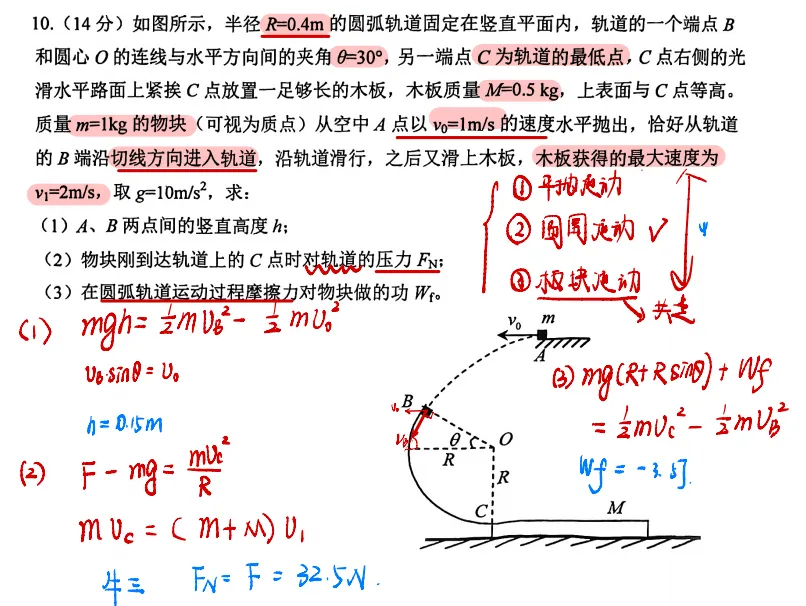 10.(14分)如图所示，半径R=0.4m的圆弧轨道固定在竖直平面内，轨道的一个端点B
和圆心O的连线与水平方向间的夹角θ=30°，另一端点C为轨道的最低点，C点右侧的光
滑水平路面上紧挨C点放置一足够长的木板，木板质量M=0.5 kg，上表面与C点等高。
质量m=1kg的物块（可视为质点）从空中A点以v₀=1m/s的速度水平抛出，恰好从轨道
的B端沿切线方向进入轨道，沿轨道滑行，之后又滑上木板，木板获得的最大速度为
v₁=2m/s，取g=10m/s²，求：
（1）A、B两点间的竖直高度h；
（2）物块刚到达轨道上的C点时对轨道的压力F_N；
（3）在圆弧轨道运动过程摩擦力对物块做的功W_f。
① 平抛运动
② 圆周运动 ✓
③ 板块运动
共速
(1) mgh = ½mv_B² - ½mv₀²
v_B·sinθ = v₀
h=0.15m
(2) F - mg = mv_C²/R
mv_C = (m+M)v₁
牛三 F_N = F = 32.5N.
(3) mg(R+Rsinθ) + Wf
= ½mv_C² - ½mv_B²
Wf = -3.5J.
v₀
m
A
B
v₀
v_B
θ
O
R
R
C
M